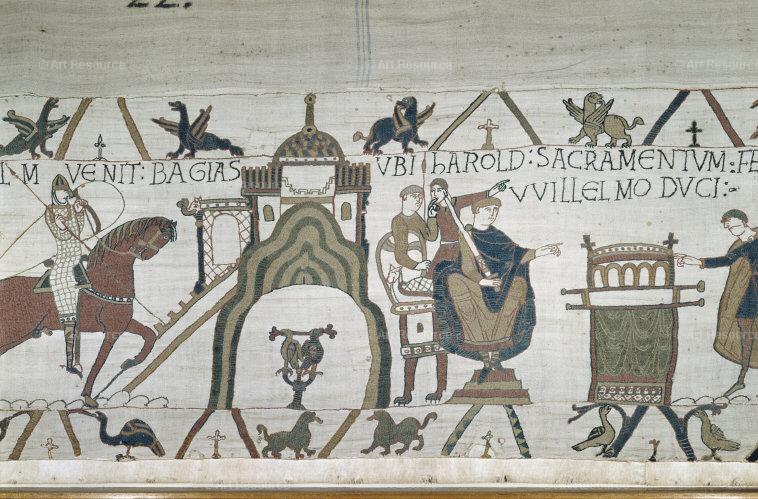 22.
© Art Resource © Art Resource © Art Resource
LM VENIT: BAGIAS VBI hAROLD: SACRAMENTVM: FE
VVILLELMO DVCI:-